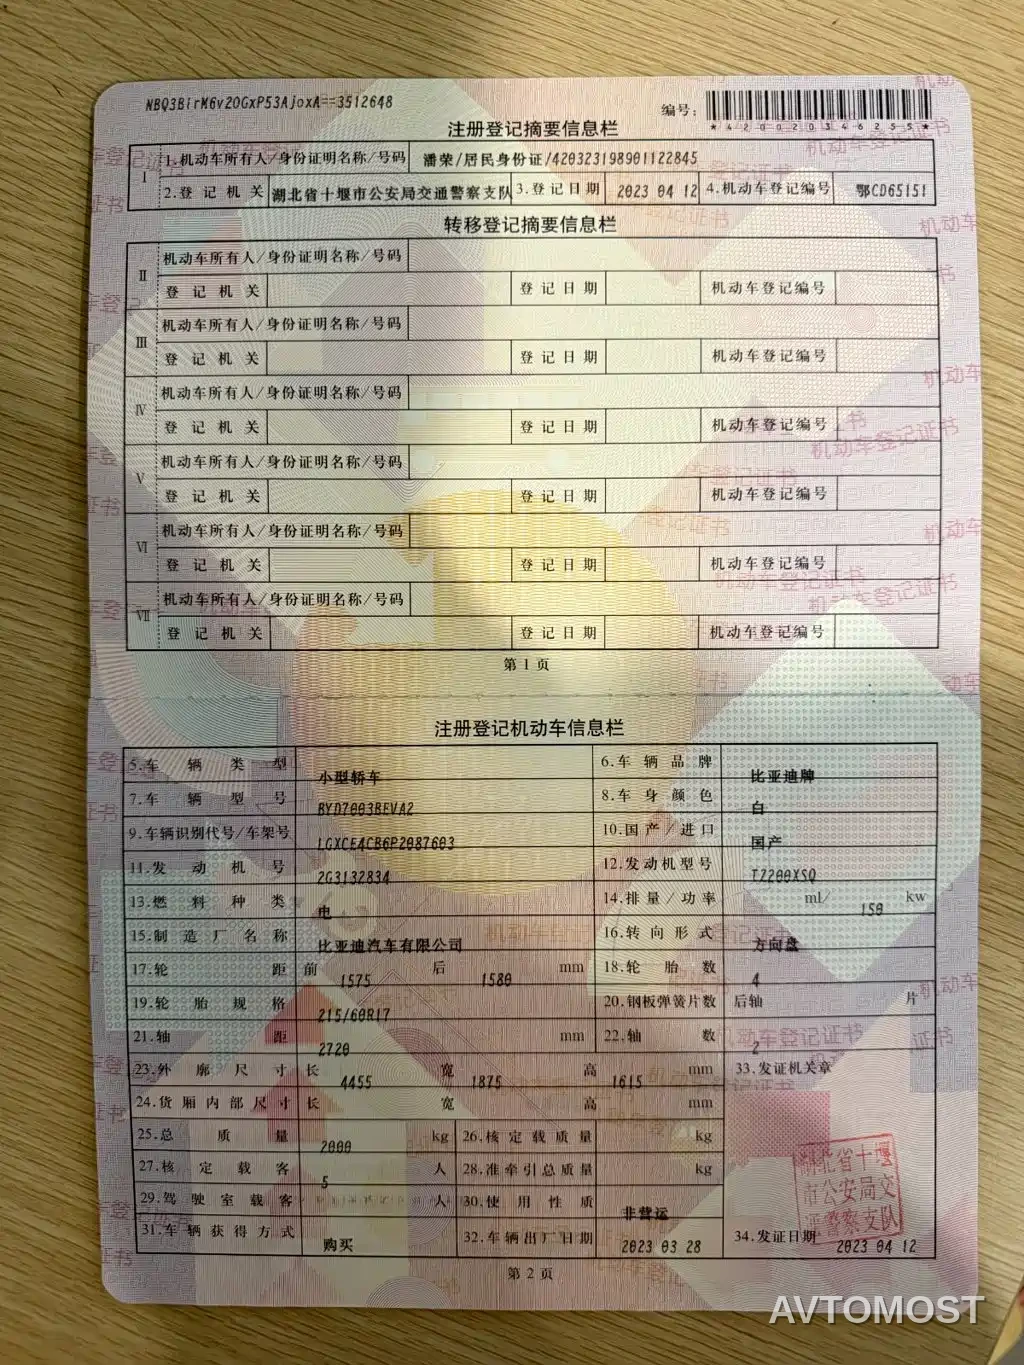 NBQ3BirM6v2OGxP53AjoxA==3512648
编号:
*420020346255*
注册登记摘要信息栏
Ⅰ 1.机动车所有人/身份证明名称/号码 潘荣/居民身份证/420323198901122845
2.登记机关 湖北省十堰市公安局交通警察支队 3.登记日期 2023 04 12 4.机动车登记编号 鄂CD65151
转移登记摘要信息栏
Ⅱ 机动车所有人/身份证明名称/号码
登记机关 登记日期 机动车登记编号
Ⅲ 机动车所有人/身份证明名称/号码
登记机关 登记日期 机动车登记编号
Ⅳ 机动车所有人/身份证明名称/号码
登记机关 登记日期 机动车登记编号
Ⅴ 机动车所有人/身份证明名称/号码
登记机关 登记日期 机动车登记编号
Ⅵ 机动车所有人/身份证明名称/号码
登记机关 登记日期 机动车登记编号
Ⅶ 机动车所有人/身份证明名称/号码
登记机关 登记日期 机动车登记编号
第 1 页
注册登记机动车信息栏
5.车辆类型 小型轿车 6.车辆品牌 比亚迪牌
7.车辆型号 BYD7003BEVA2 8.车身颜色 白
9.车辆识别代号/车架号 LGXCE4CB6P2087603 10.国产/进口 国产
11.发动机号 2G3132834 12.发动机型号 TZ200XSQ
13.燃料种类 电 14.排量/功率 ml/ 150 kw
15.制造厂名称 比亚迪汽车有限公司 16.转向形式 方向盘
17.轮距 前 1575 后 1580 mm 18.轮胎数 4
19.轮胎规格 215/60R17 20.钢板弹簧片数 后轴 片
21.轴距 2720 mm 22.轴数 2
23.外廓尺寸 长 4455 宽 1875 高 1615 mm 33.发证机关章
24.货厢内部尺寸 长 宽 高 mm
25.总质量 2000 kg 26.核定载质量 kg
27.核定载客 5 人 28.准牵引总质量 kg
29.驾驶室载客 人 30.使用性质 非营运
31.车辆获得方式 购买 32.车辆出厂日期 2023 03 28 34.发证日期 2023 04 12
湖北省十堰
市公安局交
通警察支队
第 2 页
AVTOMOST